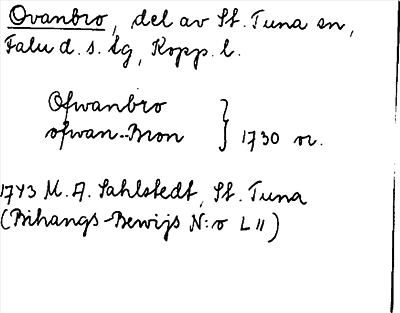 Ovanbro, del av St. Tuna sn,
Falu d. s. lg, Kopp. l.
Ofwanbro
ofwan-Bron } 1730 or.
1743 M. A. Sahlstedt, St. Tuna
(Bihangs-Bewijs N:o L II)